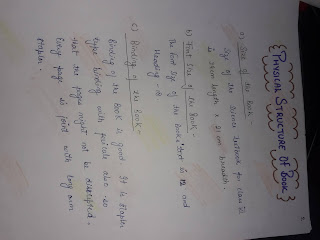 {PHYSICAL STRUCTURE OF BOOK}
a) Size of the Book -
Size of the Science textbook for class IX
is 28cm length x 21cm breadth.
b) Font Size of the Book -
The Font Size of the Book text is 12 and
Heading - 18
c) Binding of the Book -
Binding of the Book is good. It is stapler
type binding with paste also so
that the pages might not be
Every page is joint with long arm
stapler.